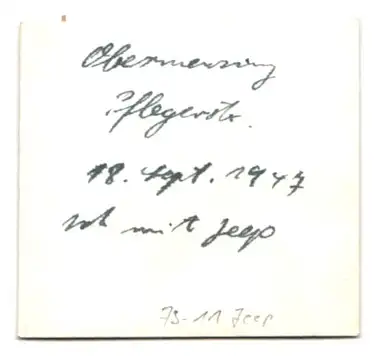 Obermenzing
Pflegerstr.
18. Sept. 1947
ich mit Jeep
73-11 Jeep